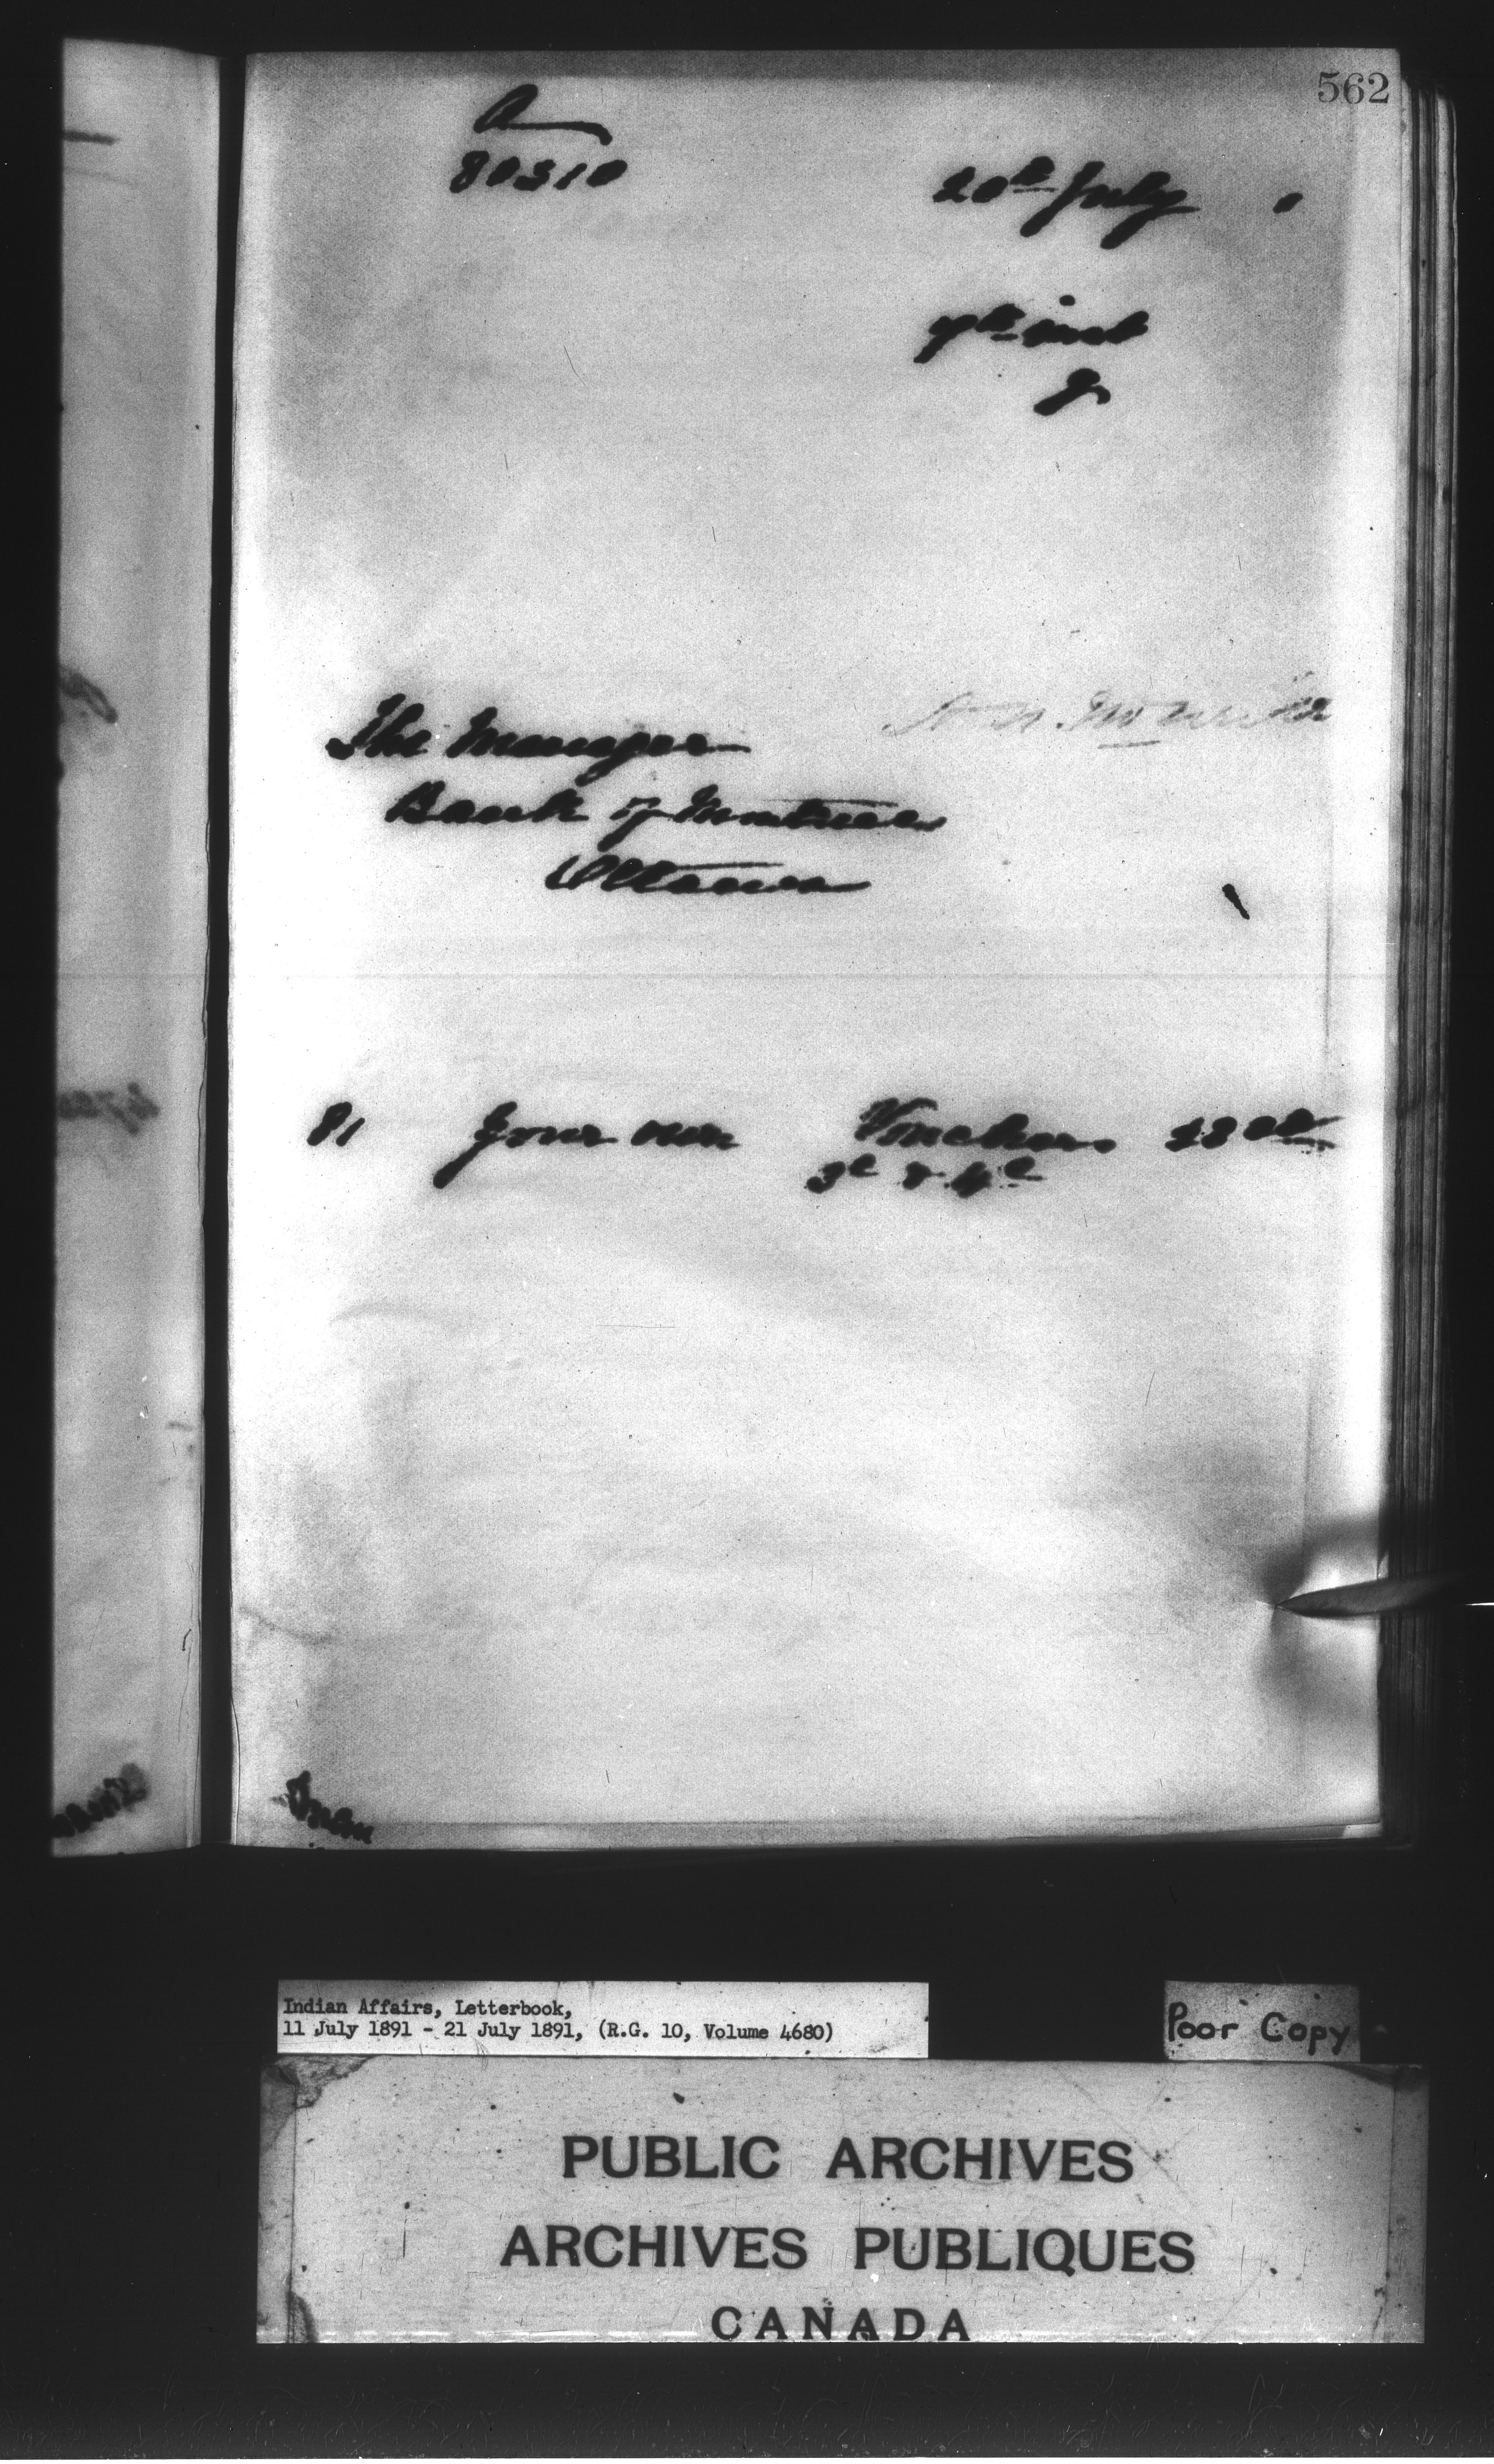 562
A
80310
20th July
7th inst
The Manager
Bank of Montreal
Ottawa
81 Your own Vouchers
3c & 4c
Indian Affairs, Letterbook,
11 July 1891 - 21 July 1891, (R.G. 10, Volume 4680)
Poor Copy
PUBLIC ARCHIVES
ARCHIVES PUBLIQUES
CANADA